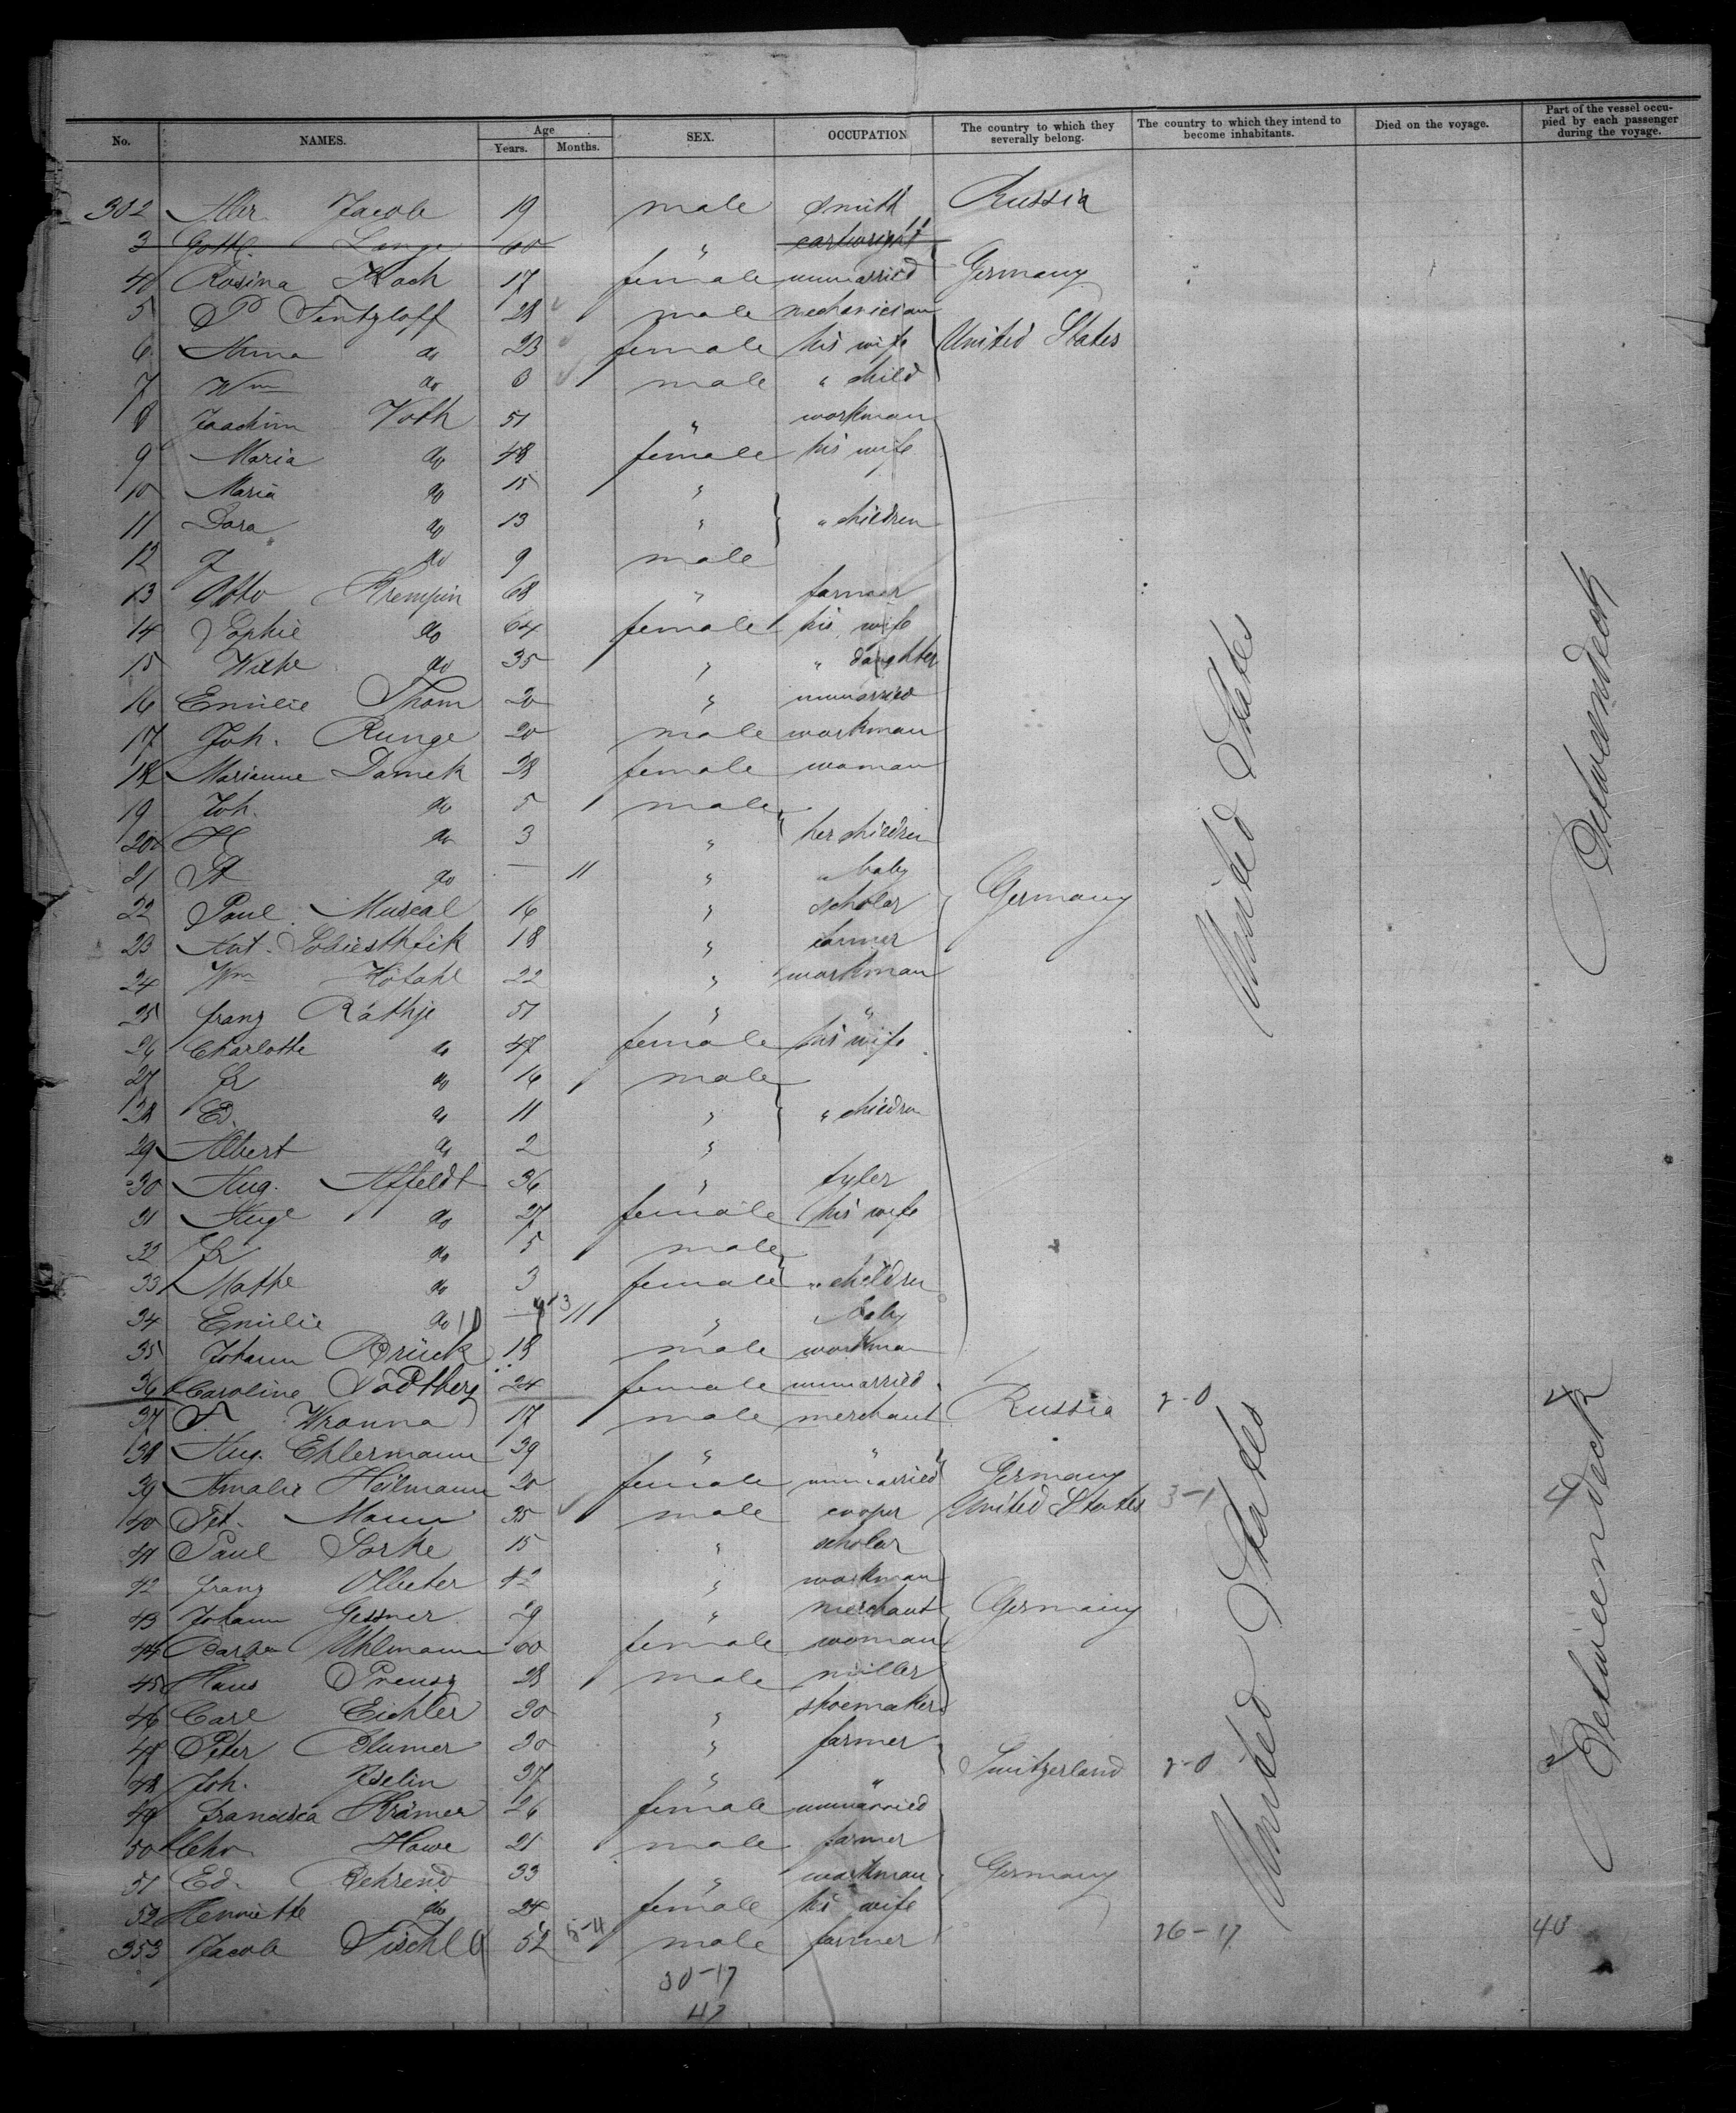 No. NAMES. Age Years. Months. SEX. OCCUPATION The country to which they severally belong. The country to which they intend to become inhabitants. Died on the voyage. Part of the vessel occupied by each passenger during the voyage.
302 Jacob 19 male smith Russia
3 Gottl. Lange 60 " cartwright
4 Rosina Koch 17 female unmarried Germany
5 P Tentzloff 28 male mechanician
6 Anna do 23 female his wife United States
7 Wm do 3 male " child
8 Joachim Voth 51 " workman
9 Maria do 48 female his wife
10 Maria do 15 "
11 Dora do 13 " " children
12 J do 9 male
13 Otto Krempin 68 " farmer
14 Sophie do 64 female his wife
15 do 35 " " daughter
16 Emilie Thom 20 " unmarried
17 Joh. Runge 20 male workman
18 Marianne Damek 28 female woman
19 Joh. do 5 male
20 H do 3 " her children
21 St do — 11 " " baby
22 Paul Museal 16 " scholar Germany
23 Ant. 18 " farmer
24 Wm 22 " workman
25 franz Räthje 51 " "
26 Charlotte do 47 female his wife
27 Fr do 16 male
28 Ed. do 11 " " children
29 Albert do 2 "
30 Aug. Affeldt 36 " tyler
31 Auge do 27 female his wife
32 Fr do 5 male
33 Mathe do 3 female " children
34 Emilie do — 11 " baby
35 Johann Brück 18 male workman
36 Caroline Södtberg 24 female unmarried
37 Wronna 17 male merchant Russia 2-0 4
38 Aug. Ehlermann 39 " "
39 Amalie Heilmann 20 female unmarried Germany
40 Pet. Mann 35 male cooper United States 3-1 4
41 Paul Sorke 15 " scholar
42 franz Olbeter 42 " workman
43 Johann Gessner 29 " merchant Germany
44 Uhlmann 60 female woman
45 Hans Preusz 28 male miller
46 Carl Eichler 30 " shoemaker
47 Peter Blumer 30 " farmer
48 Joh. Iselin 37 " " Switzerland 2-0 2
49 Francisca Krämer 26 female unmarried
50 Chr. Hawe 21 male farmer
51 Ed. Behrend 33 " workman Germany
52 Henriette do 24 female his wife
353 Jacob Tischle 52 5-4 male farmer 26-17 40
30-17
47
United States
United States
Betweendeck
Betweendeck